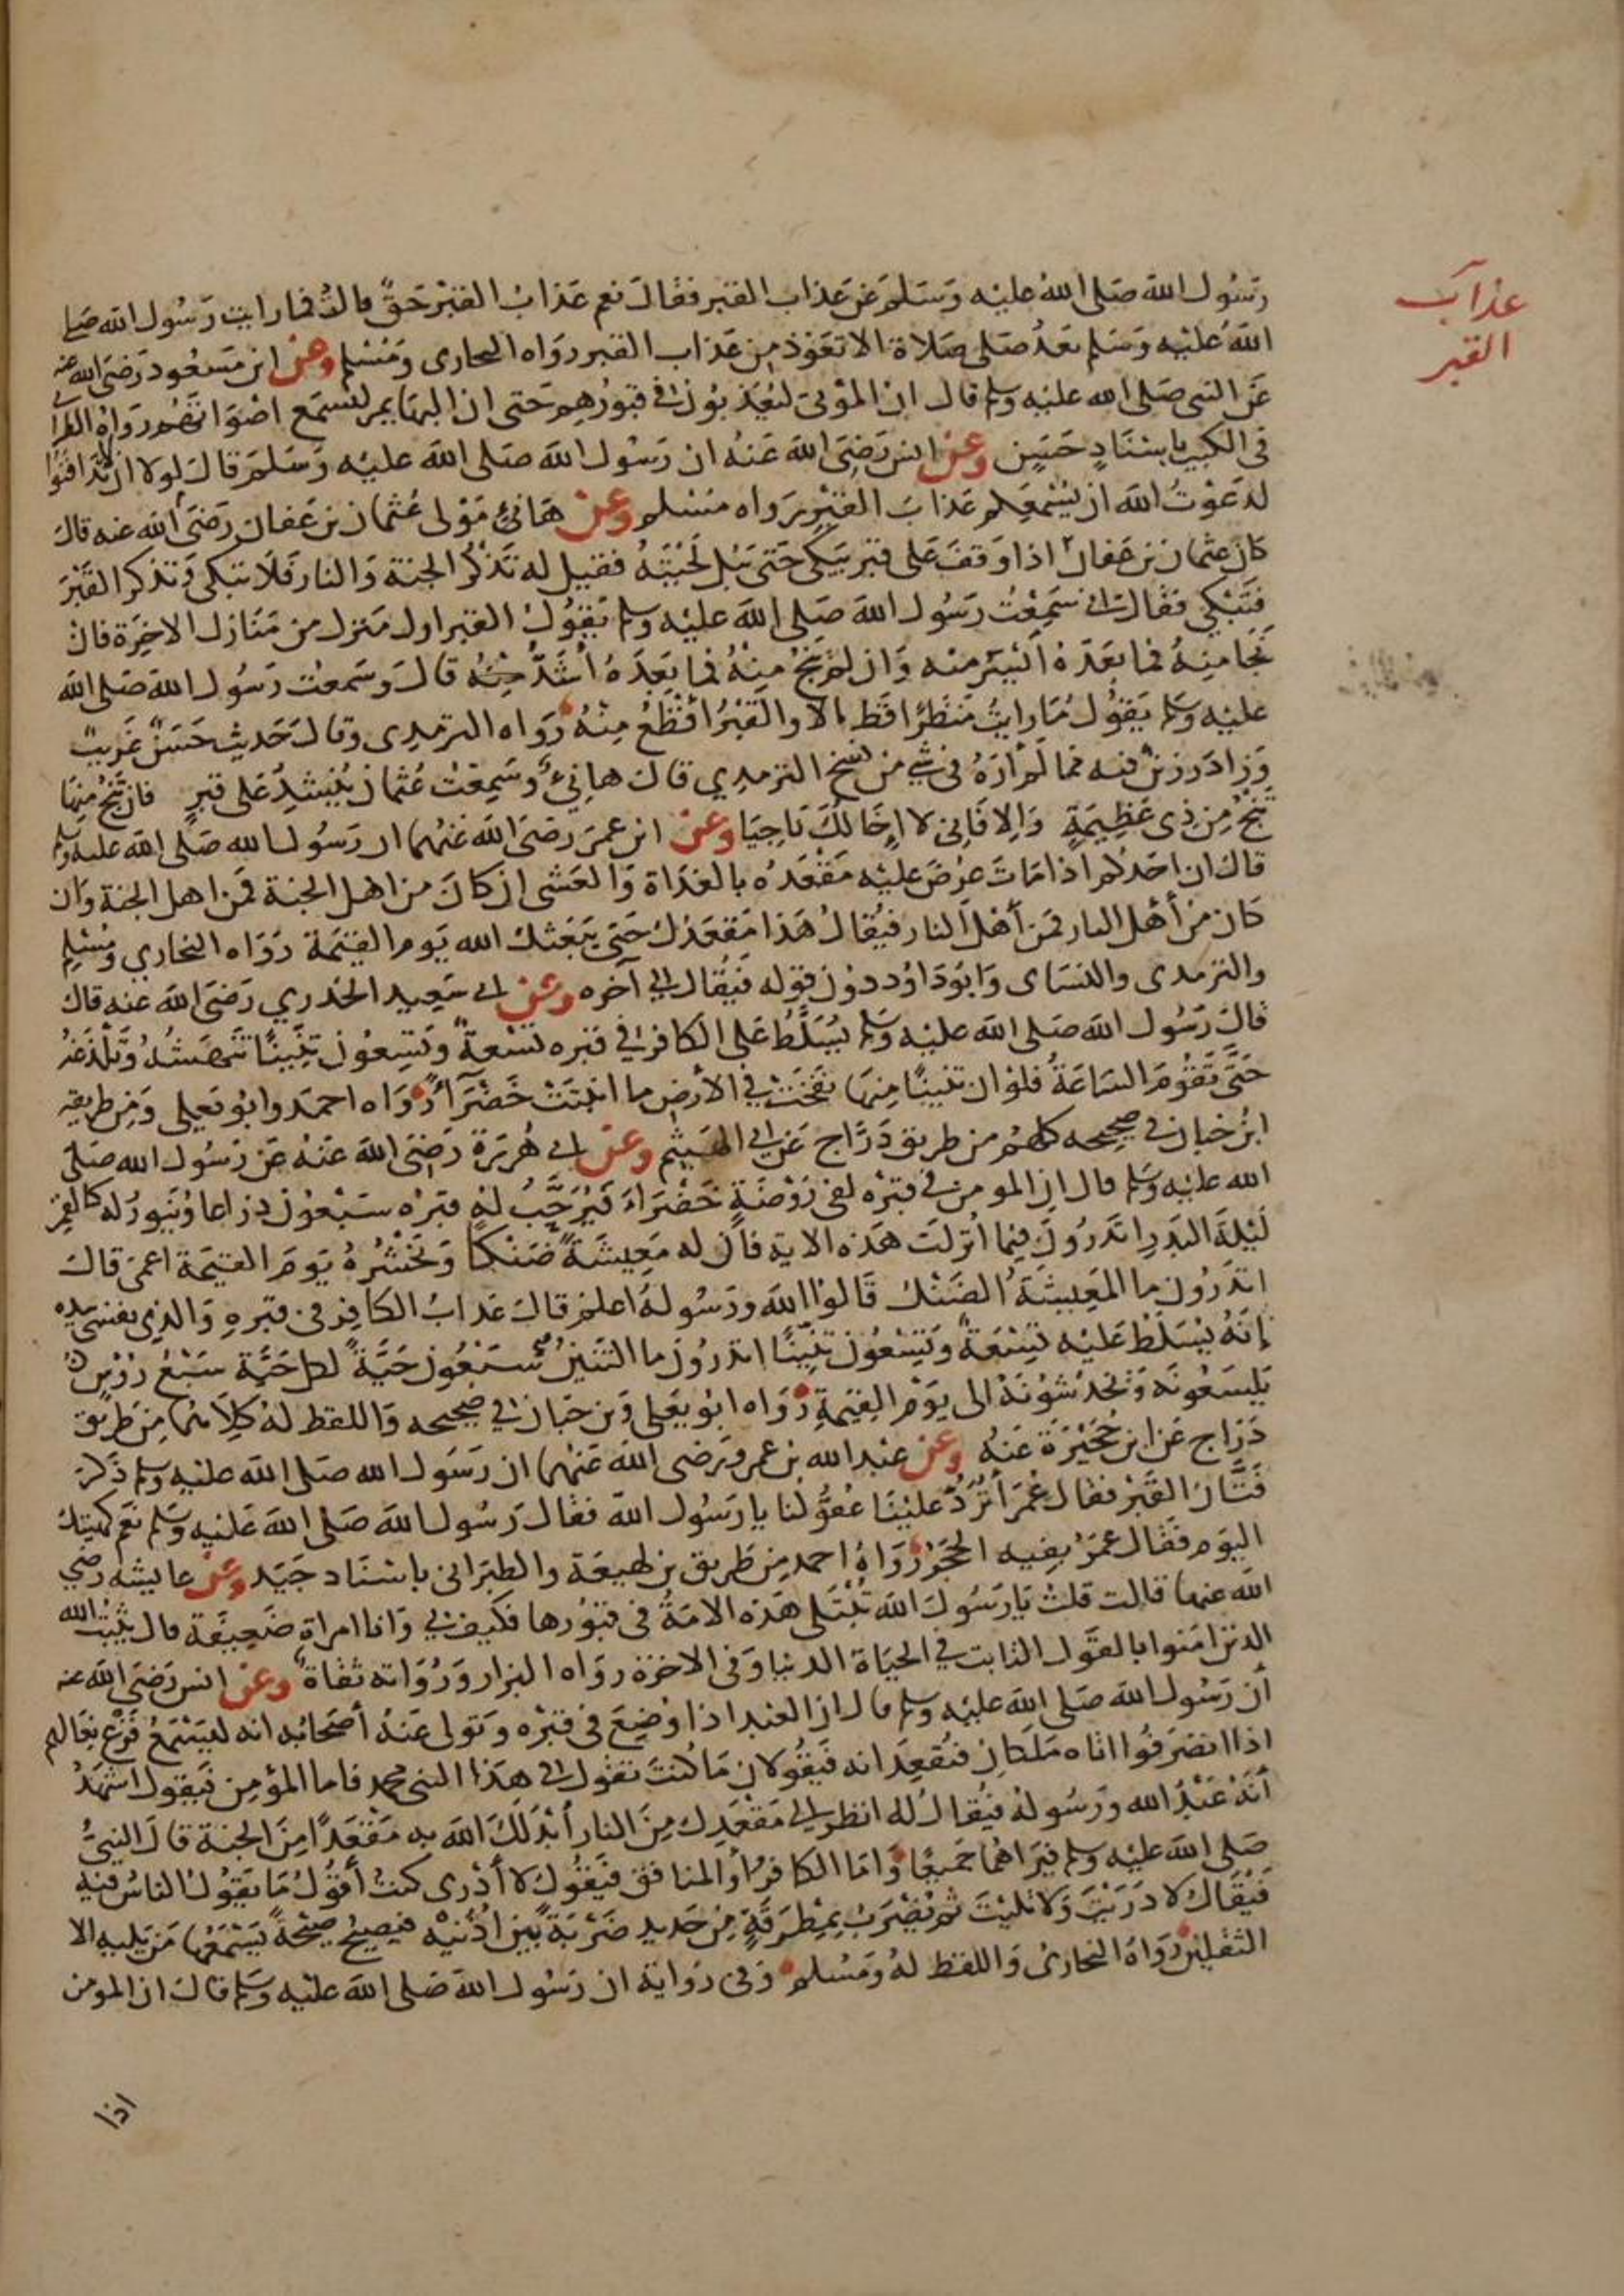 عذاب
القبر
رسول الله صلى الله عليه وسلم عن عذاب القبر فقال نعم عذاب القبر حق قالت فما رايت رسول الله صلى
الله عليه وسلم بعد صلى صلاة الا تعوذ من عذاب القبر رواه البخارى ومسلم وعن ابن مسعود رضى الله عنه
عن النبى صلى الله عليه وسلم قال ان الموتى ليعذبون فى قبورهم حتى ان البهايم لتسمع اصواتهم رواه الطبرا
فى الكبير باسناد حسن وعن انس رضى الله عنه ان رسول الله صلى الله عليه وسلم قال لولا ان لا تدافنوا
لدعوت الله ان يسمعكم عذاب القبر رواه مسلم وعن هانئ مولى عثمان بن عفان رضى الله عنه قال
كان عثمان بن عفان اذا وقف على قبر يبكى حتى يبل لحيته فقيل له تذكر الجنة والنار فلا تبكى وتذكر القبر
فتبكي فقال انى سمعت رسول الله صلى الله عليه وسلم يقول القبر اول منزل من منازل الاخرة فان
نجا منه فما بعده ايسر منه وان لم ينج منه فما بعده أشد منه قال وسمعت رسول الله صلى الله
عليه وسلم يقول ما رايت منظرا قط الا والقبر افظع منه رواه الترمدى وقال حديث حسن غريب
وزاد رزين فيه مما لم أره فى شئ من نسخ الترمدي قال هانئ وسمعت عثمان ينشد على قبر فان تنج منها
تنج من ذى عظيمة والا فانى لا اخالك ناجيا وعن ابن عمر رضى الله عنهما ان رسول الله صلى الله عليه وسلم
قال ان احدكم اذا مات عرض عليه مقعده بالغداة والعشى ان كان من اهل الجنة فمن اهل الجنة وان
كان من أهل النار فمن أهل النار فيقال هذا مقعدك حتى يبعثك الله يوم القيمة رواه البخاري ومسلم
والترمدى والنساى وابو داود دون قوله فيقال الى آخره وعن ابى سعيد الخدري رضى الله عنه قال
قال رسول الله صلى الله عليه وسلم يسلط على الكافر فى قبره تسعة وتسعون تنينا تنهشه وتلدغه
حتى تقوم الساعة فلو ان تنينا منها نفخت فى الأرض ما انبتت خضرآء رواه احمد وابو يعلى ومن طريقه
ابن حبان فى صحيحه كلهم من طريق دراج عن ابى الهيثم وعن ابى هريرة رضى الله عنه عن رسول الله صلى
الله عليه وسلم قال ان المومن فى قبره لفى روضة خضراء فيرحب له قبره سبعون ذراعا وينور له كالقمر
ليلة البدر اتدرون فيما أنزلت هذه الاية فان له معيشة ضنكا ونحشره يوم القيمة اعمى قال
اتدرون ما المعيشة الضنك قالوا الله ورسوله اعلم قال عذاب الكافر فى قبره والذى نفسى بيده
إنه يسلط عليه تسعة وتسعون تنينا اتدرون ما التنين سبعون حية لكل حية سبع رؤس
يلسعونه ويخدشونه الى يوم القيمة رواه ابو يعلى وبن حبان فى صحيحه واللفظ له كلاهما من طريق
دراج عن ابن حجيرة عنه وعن عبد الله بن عمرو رضى الله عنهما ان رسول الله صلى الله عليه وسلم ذكر
فتان القبر فقال عمر أترد علينا عقولنا يا رسول الله فقال رسول الله صلى الله عليه وسلم نعم كهيئتك
اليوم فقال عمر بفيه الحجر رواه احمد من طريق بن لهيعة والطبرانى باسناد جيد وعن عايشه رضي
الله عنها قالت قلت يا رسول الله تبتلى هذه الامة فى قبورها فكيف بى وانا امراة ضعيفة قال يثبت الله
الدين امنوا بالقول الثابت فى الحياة الدنيا وفى الاخرة رواه البزار ورواته ثقاة وعن انس رضى الله عنه
أن رسول الله صلى الله عليه وسلم قال ان العبد اذا وضع فى قبره وتولى عنه أصحابه انه ليسمع قرع نعالهم
اذا انصرفوا اتاه ملكان فيقعدانه فيقولان ما كنت تقول فى هذا النبى محمد فاما المؤمن فيقول اشهد
أنه عبد الله ورسوله فيقال له انظر الى مقعدك من النار أبدلك الله به مقعدا من الجنة قال النبى
صلى الله عليه وسلم فيراهما جميعا واما الكافر أو المنافق فيقول لا أدرى كنت أقول ما يقول الناس فيه
فيقال لا دريت ولا تليت ثم يضرب بمطرقة من حديد ضربة بين اذنيه فيصيح صيحة يسمعها من يليه الا
الثقلين رواه البخارى واللفظ له ومسلم وفى رواية ان رسول الله صلى الله عليه وسلم قال ان المومن
اذا